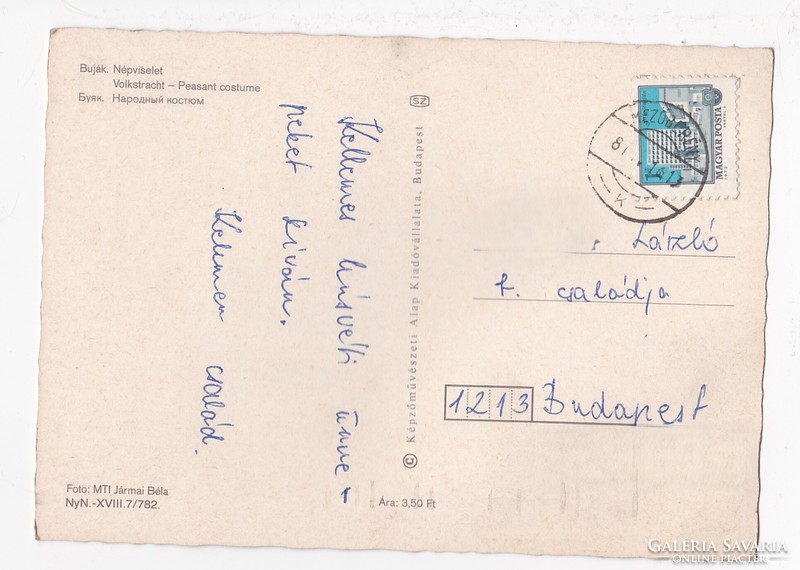 Buják. Népviselet
Volkstracht – Peasant costume
Буяк. Народный костюм
Kellemes húsvéti ünne-
peket kíván.
Kelemen család.
SZ
© Képzőművészeti Alap Kiadóvállalata, Budapest
MAGYAR POSTA
László
f. családja
1213 Budapest
Foto: MTI Jármai Béla
NyN.-XVIII.7/782.
Ára: 3,50 Ft
GALÉRIA SAVARIA
ONLINE PIACTÉR